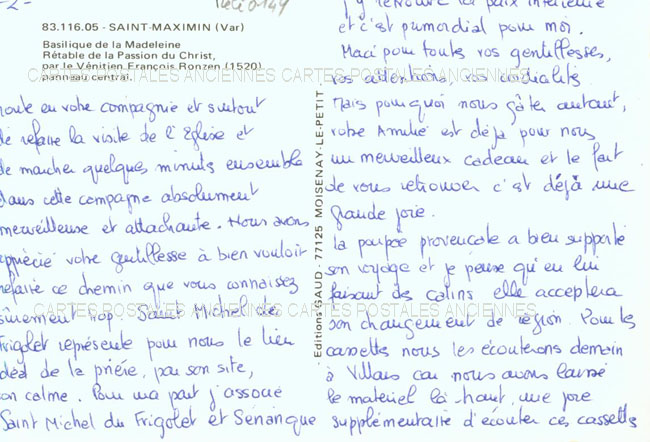 -2-
83.116.05 - SAINT-MAXIMIN (Var)
Basilique de la Madeleine
Rétable de la Passion du Christ,
par le Vénitien François Ronzen (1520)
panneau central.
CARTES POSTALES ANCIENNES CARTES POSTALES ANCIENNES
route en votre compagnie et surtout
de refaire la visite de l'Eglise et
de marcher quelques minutes ensemble
dans cette campagne absolument
merveilleuse et attachante. Nous avons
apprécié votre gentillesse à bien vouloir
refaire ce chemin que vous connaissez
sûrement trop. Saint Michel de
CARTES POSTALES ANCIENNES CARTES POSTALES ANCIENNES
Frigolet représente pour nous le lieu
idéal de la prière, par son site,
son calme. Pour ma part j'associe
Saint Michel du Frigolet et Sénanque
Editions GAUD - 77125 MOISENAY-LE-PETIT
j'y retrouve la paix intérieure
et c'est primordial pour moi.
Merci pour toutes vos gentillesses,
vos attentions, vos cordialités
Mais pourquoi nous gâter autant,
votre Amitié est déjà pour nous
un merveilleux cadeau et le fait
de vous retrouver c'est déjà une
grande joie.
La poupée provençale a bien supporté
son voyage et je pense qu'en lui
faisant des calins elle acceptera
son changement de région. Pour les
cassettes nous les écouterons demain
à Villars car nous avons laissé
le matériel là-haut, une joie
supplémentaire d'écouter ces cassettes